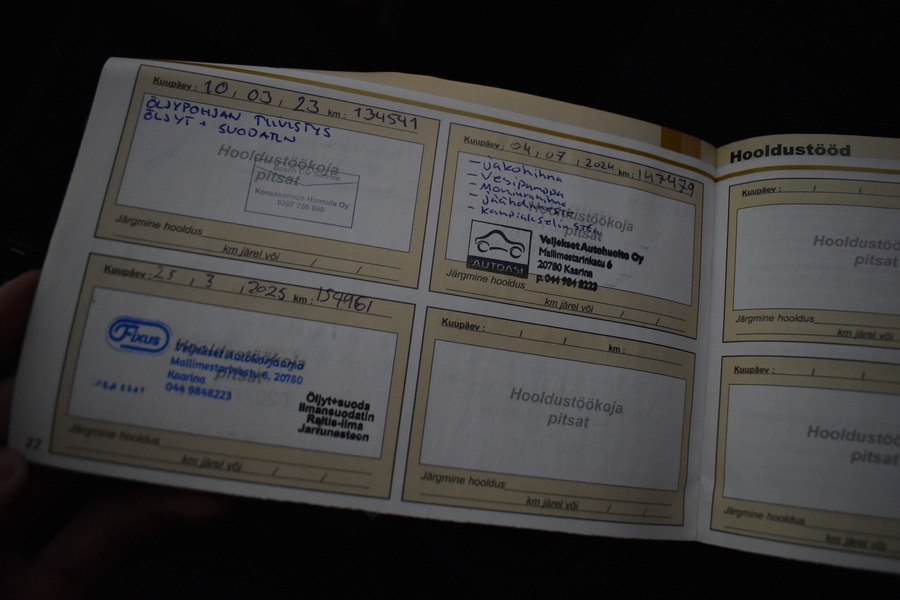 Kuupäev : 10 , 03 , 23 km : 134541
ÖLJYPOHJAN TIIVISTYS
ÖLJYT + SUODATIN
Hooldustöökoja
pitsat
Bosch Car Service
Konsasennus Hannula Oy
Järgmine hooldus
km järel või / /
Kuupäev : 04 , 07 , 2024 km : 147479
- Jakohihna
- Vesipumppu
- Moniurahihna
- Jäähdytinneste
Hooldustöökoja
pitsat
AUTOASI
Veljekset Autohuolto Oy
Mallimestarinkatu 6
20780 Kaarina
p.044 984 8223
Järgmine hooldus
km järel või / /
Kuupäev : 25 , 3 , 2025 km : 154961
Fixus
Hooldustöökoja
pitsat
Veljekset Autokorjaamo
Mallimestarinkatu 6, 20780
Kaarina
044 9848223
Öljyt+suoda
Ilmansuodatin
Raitis-ilma
Jarrunesteen
Järgmine hooldus
km järel või / /
22
Kuupäev : / / km :
Hooldustöökoja
pitsat
Järgmine hooldus
km järel või / /
Hooldustööd
Kuupäev : / /
Hooldustöö
pitsat
Järgmine hooldus
km järel või
Kuupäev : / /
Hooldustöö
pitsat
Järgmine hooldus
km järel või